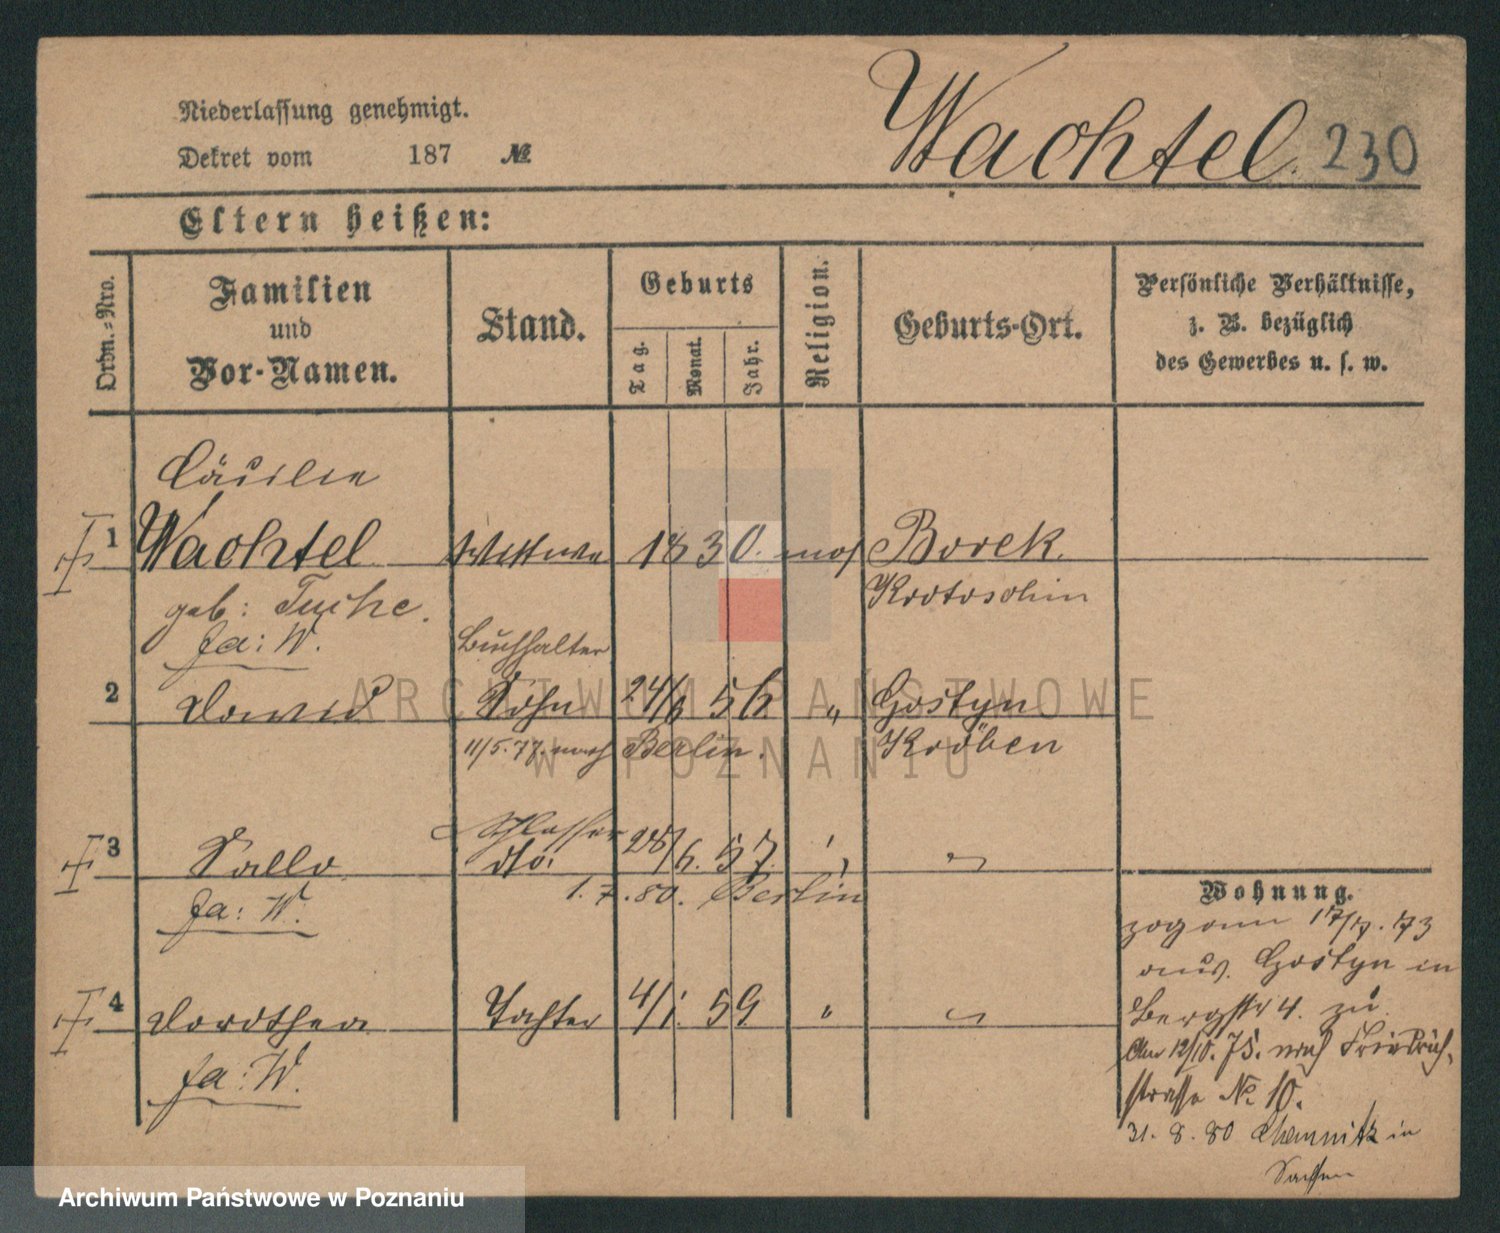 Niederlassung genehmigt.
Dekret vom 187 №
Wachtel. 230
Eltern heißen:
Ordn.-Nro.
Familien und Vor-Namen.
Stand.
Geburts
Tag. Monat. Jahr.
Religion.
Geburts-Ort.
Persönliche Verhältnisse,
z. B. bezüglich
des Gewerbes u. s. w.
Cäcilie
1 Wachtel Wittwe 1830. mos Borek.
geb: Krotoschin
Fa: W.
Buchhalter
2 David Sohn 24/6 56 " Gostyn
11/5. 77. nach Berlin. Kröben
Schlosser
3 Sallo dto. 28/6. 57. "
1. 7. 80. Berlin
Fa: W.
4 Dorothea Tochter 4/1. 59 "
Fa: W.
Wohnung.
zog am 17/17. 73
aus Gostyn in
Bergstr 4. zu
Am 12/10. 75. nach Friedrich-
strasse No 10.
31. 8. 80 Chemnitz in
Sachsen
ARCHIWUM PAŃSTWOWE
W POZNANIU
Archiwum Państwowe w Poznaniu